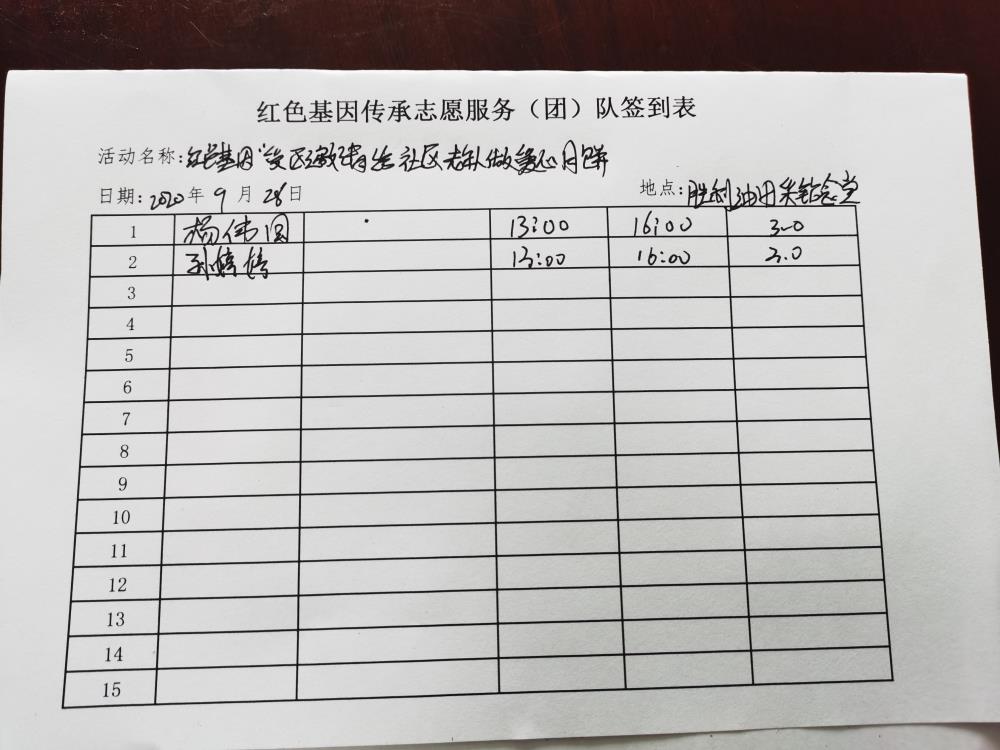 红色基因传承志愿服务（团）队签到表
活动名称:红色基因 社区老人做爱心月饼
日期: 2020 年 9 月 28 日
地点: 胜利油田
1 杨伟国 13:00 16:00 3.0
2 孙婷婷 13:00 16:00 3.0
3
4
5
6
7
8
9
10
11
12
13
14
15